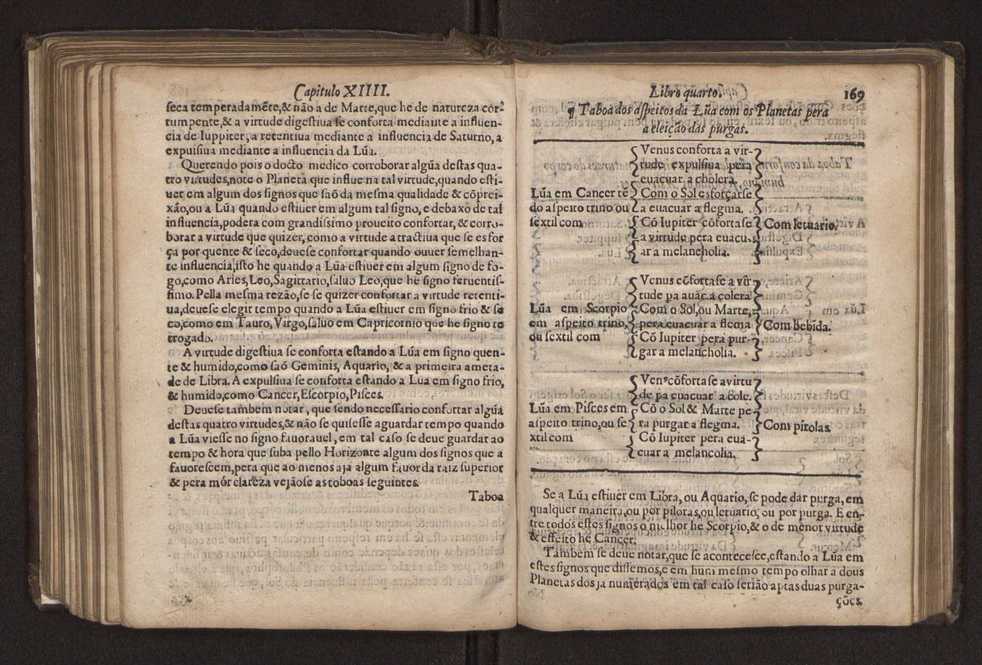 Capitulo XIIII.
seca temperadamẽte,& não a de Marte,que he de natureza cor-
rumpente,& a virtude digestiua se conforta mediante a influen-
cia de Iuppiter, a retentiua mediante a influencia de Saturno, a
expulsiua mediante a influencia da Lũa.
Querendo pois o docto medico corroborar algũa destas qua-
tro virtudes,note o Planeta que influe na tal virtude,quando esti-
uer em algum dos signos que saõ da mesma qualidade & cõprei-
xão,ou a Lũa quando estiuer em algum tal signo, e debaxo de tal
influencia,podera com grandissimo proueito confortar, & corro-
borar a virtude que quizer, como a virtude atractiua que se esfor
ça por quente & seco,deuese confortar quando ouuer semelhan-
te influencia,isto he quando a Lũa estiuer em algum signo de fo-
go,como Aries,Leo,Sagittario,saluo Leo,que he signo feruentis-
simo. Pella mesma rezão,se se quizer confortar a virtude retenti-
ua,deuese elegir tempo quando a Lũa estiuer em signo frio & se
co,como em Tauro, Virgo,saluo em Capricornio que he signo re
trogado.
A virtude digestiua se conforta estando a Lũa em signo quen-
te & humido,como saõ Geminis, Aquario, & a primeira ameta-
de de Libra. A expulsiua se conforta estando a Lua em signo frio,
& humido,como Cancer, Escorpio, Pisces.
Deuese tambem notar, que sendo necessario confortar algũa
destas quatro virtudes,& não se quisesse aguardar tempo quando
a Lũa viesse no signo fauorauel, em tal caso se deue guardar ao
tempo & hora que suba pello Horizonte algum dos signos que a
fauorescem, pera que ao menos aja algum fauor da raiz superior
& pera mòr clareza vejãose as toboas seguintes.
Taboa
Libro quarto. 169
¶ Taboa dos aspeitos da Lũa com os Planetas pera
a eleição das purgas.
Lũa em Cancer tẽ
do aspeito trino ou
sextil com
Venus conforta a vir-
tude expulsiua pera
euacuar a cholera.
Com o Sol esforçarse
a euacuar a flegma.
Cõ Iupiter cõfortase
a virtude pera euacu-
ar a melancholia.
Com letuario.
Lũa em Scorpio
em aspeito trino,
ou sextil com
Venus cõfortase a vir-
tude pa auac.a colera
Com o Sol,ou Marte,
pera euacuar a flema
Cõ Iupiter pera pur-
gar a melancholia.
Com bebida.
Lũa em Pisces em
aspeito trino,ou se
xtil com
Ven⁹ cõfortase a virtu
de pa euacuar a cole.
Cõ o Sol & Marte pe-
ra purgar a flegma.
Cõ Iupiter pera eua-
cuar a melancolia.
Com pirolas.
Se a Lũa estiuer em Libra, ou Aquario, se pode dar purga, em
qualquer maneira,ou por piloras,ou letuario, ou por purga. E en-
tre todos estes signos o milhor he Scorpio,& o de menor virtude
& effeito he Cancer.
Tambem se deue notar,que se acontecesce,estando a Lũa em
estes signos que dissemos,e em hum mesmo tempo olhar a dous
Planetas dos ja numerados em tal caso serião aptas duas purga-
ções.